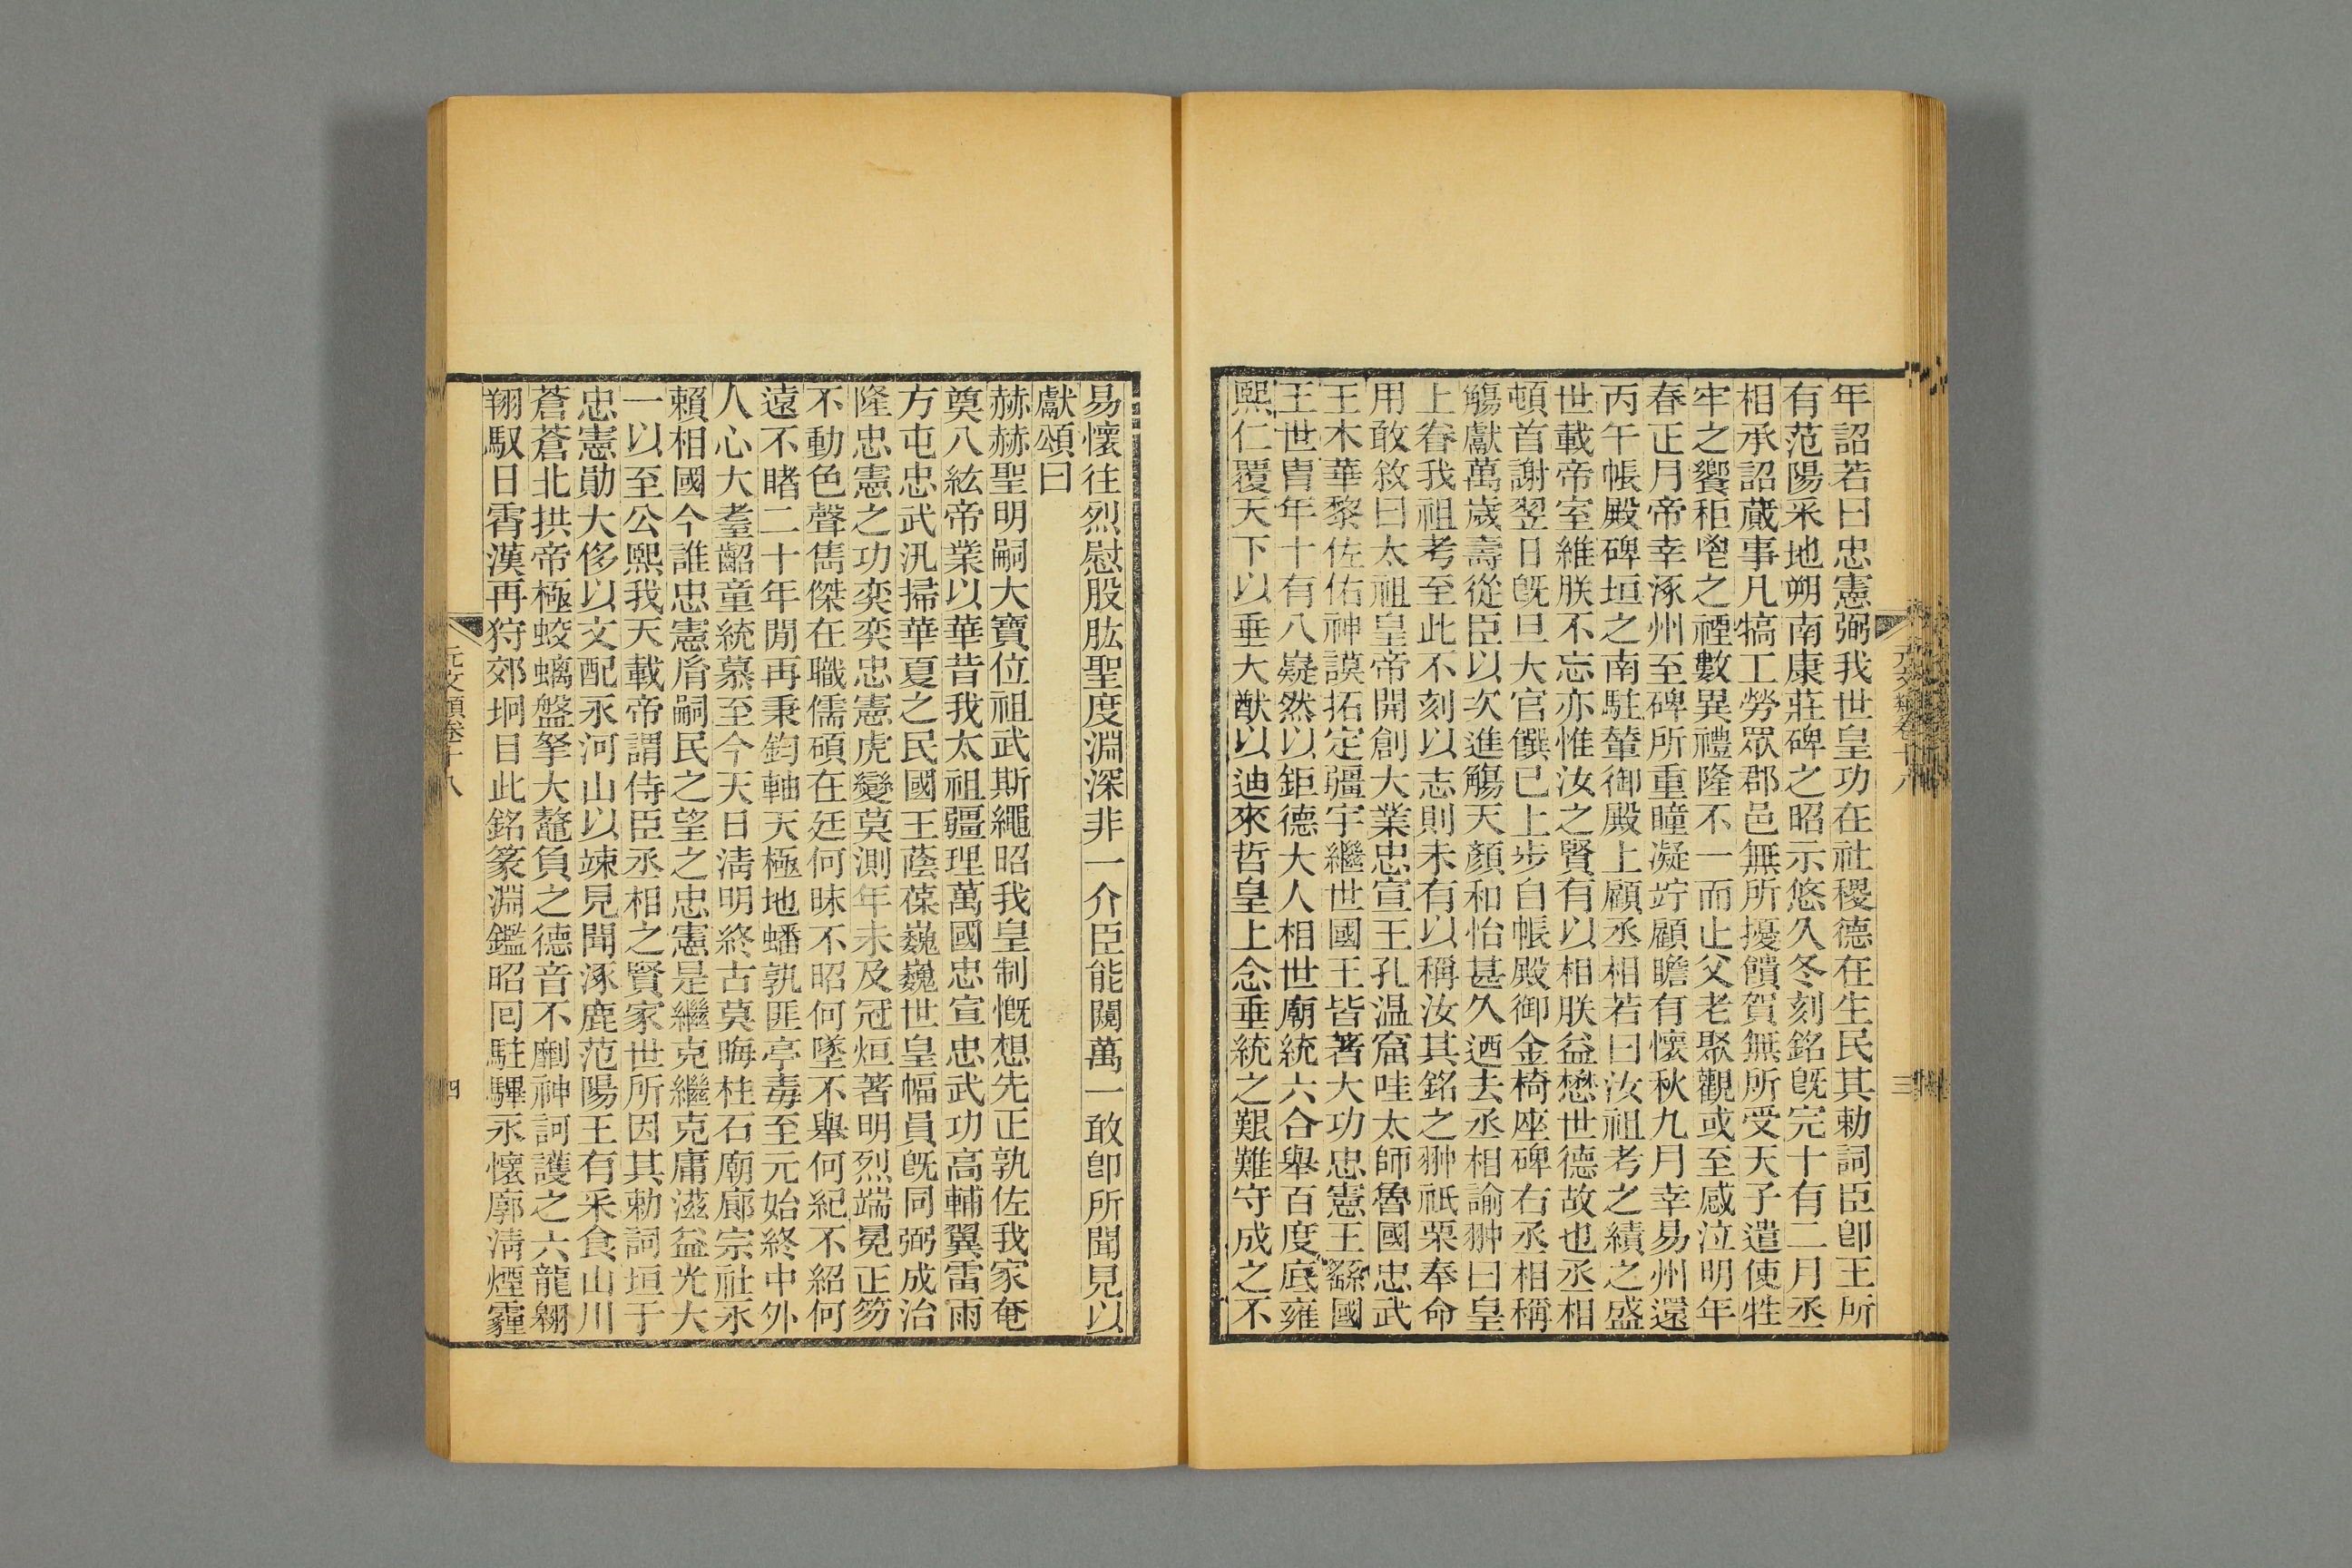 年詔若曰忠憲弼我世皇功在社稷德在生民其勅詞臣卽王所
有范陽采地朔南康莊碑之昭示悠久冬刻銘旣完十有二月丞
相承詔蕆事凡犒工勞眾郡邑無所擾饋賀無所受天子遣使牲
牢之饗秬鬯之禋數異禮隆不一而止父老聚觀或至感泣明年
春正月帝幸涿州至碑所重瞳凝竚顧瞻有懷秋九月幸易州還
丙午帳殿碑垣之南駐輦御殿上顧丞相若曰汝祖考之績之盛
世載帝室維朕不忘亦惟汝之賢有以相朕益懋世德故也丞相
頓首謝翌日旣旦大官饌已上步自帳殿御金椅座碑右丞相稱
觴獻萬歲壽從臣以次進觴天顏和怡甚久迺去丞相諭翀曰皇
上眷我祖考至此不刻以志則未有以稱汝其銘之翀祇栗奉命
用敢敘曰太祖皇帝開創大業忠宣王孔温窟哇太師魯國忠武
王木華黎佐佑神謨拓定疆宇繼世國王皆著大功忠憲王繇國
王世胄年十有八嶷然以鉅德大人相世廟統六合舉百度底雍
熙仁覆天下以垂大猷以迪來哲皇上念垂統之艱難守成之不
元文類卷十八
三
易懷往烈慰股肱聖度淵深非一介臣能闚萬一敢卽所聞見以
獻頌曰
赫赫聖明嗣大寶位祖武斯繩昭我皇制慨想先正孰佐我家奄
奠八紘帝業以華昔我太祖疆理萬國忠宣忠武功高輔翼雷雨
方屯忠武汛掃華夏之民國王蔭葆巍巍世皇幅員旣同弼成治
隆忠憲之功奕奕忠憲虎變莫測年未及冠烜著明烈端冕正笏
不動色聲雋傑在職儒碩在廷何昧不昭何墜不舉何紀不紹何
遠不睹二十年閒再秉鈞軸天極地蟠孰匪亭毒至元始終中外
人心大耋齠童統慕至今天日淸明終古莫晦柱石廟廊宗社永
賴相國今誰忠憲胥嗣民之望之忠憲是繼克繼克庸滋益光大
一以至公熙我天載帝謂侍臣丞相之賢家世所因其勅詞垣于
忠憲勛大侈以文配永河山以竦見聞涿鹿范陽王有采食山川
蒼蒼北拱帝極蛟螭盤拏大鼇負之德音不劘神訶護之六龍翱
翔馭日霄漢再狩郊坰目此銘篆淵鑑昭回駐驆永懷廓淸煙霾
元文類卷十八
四